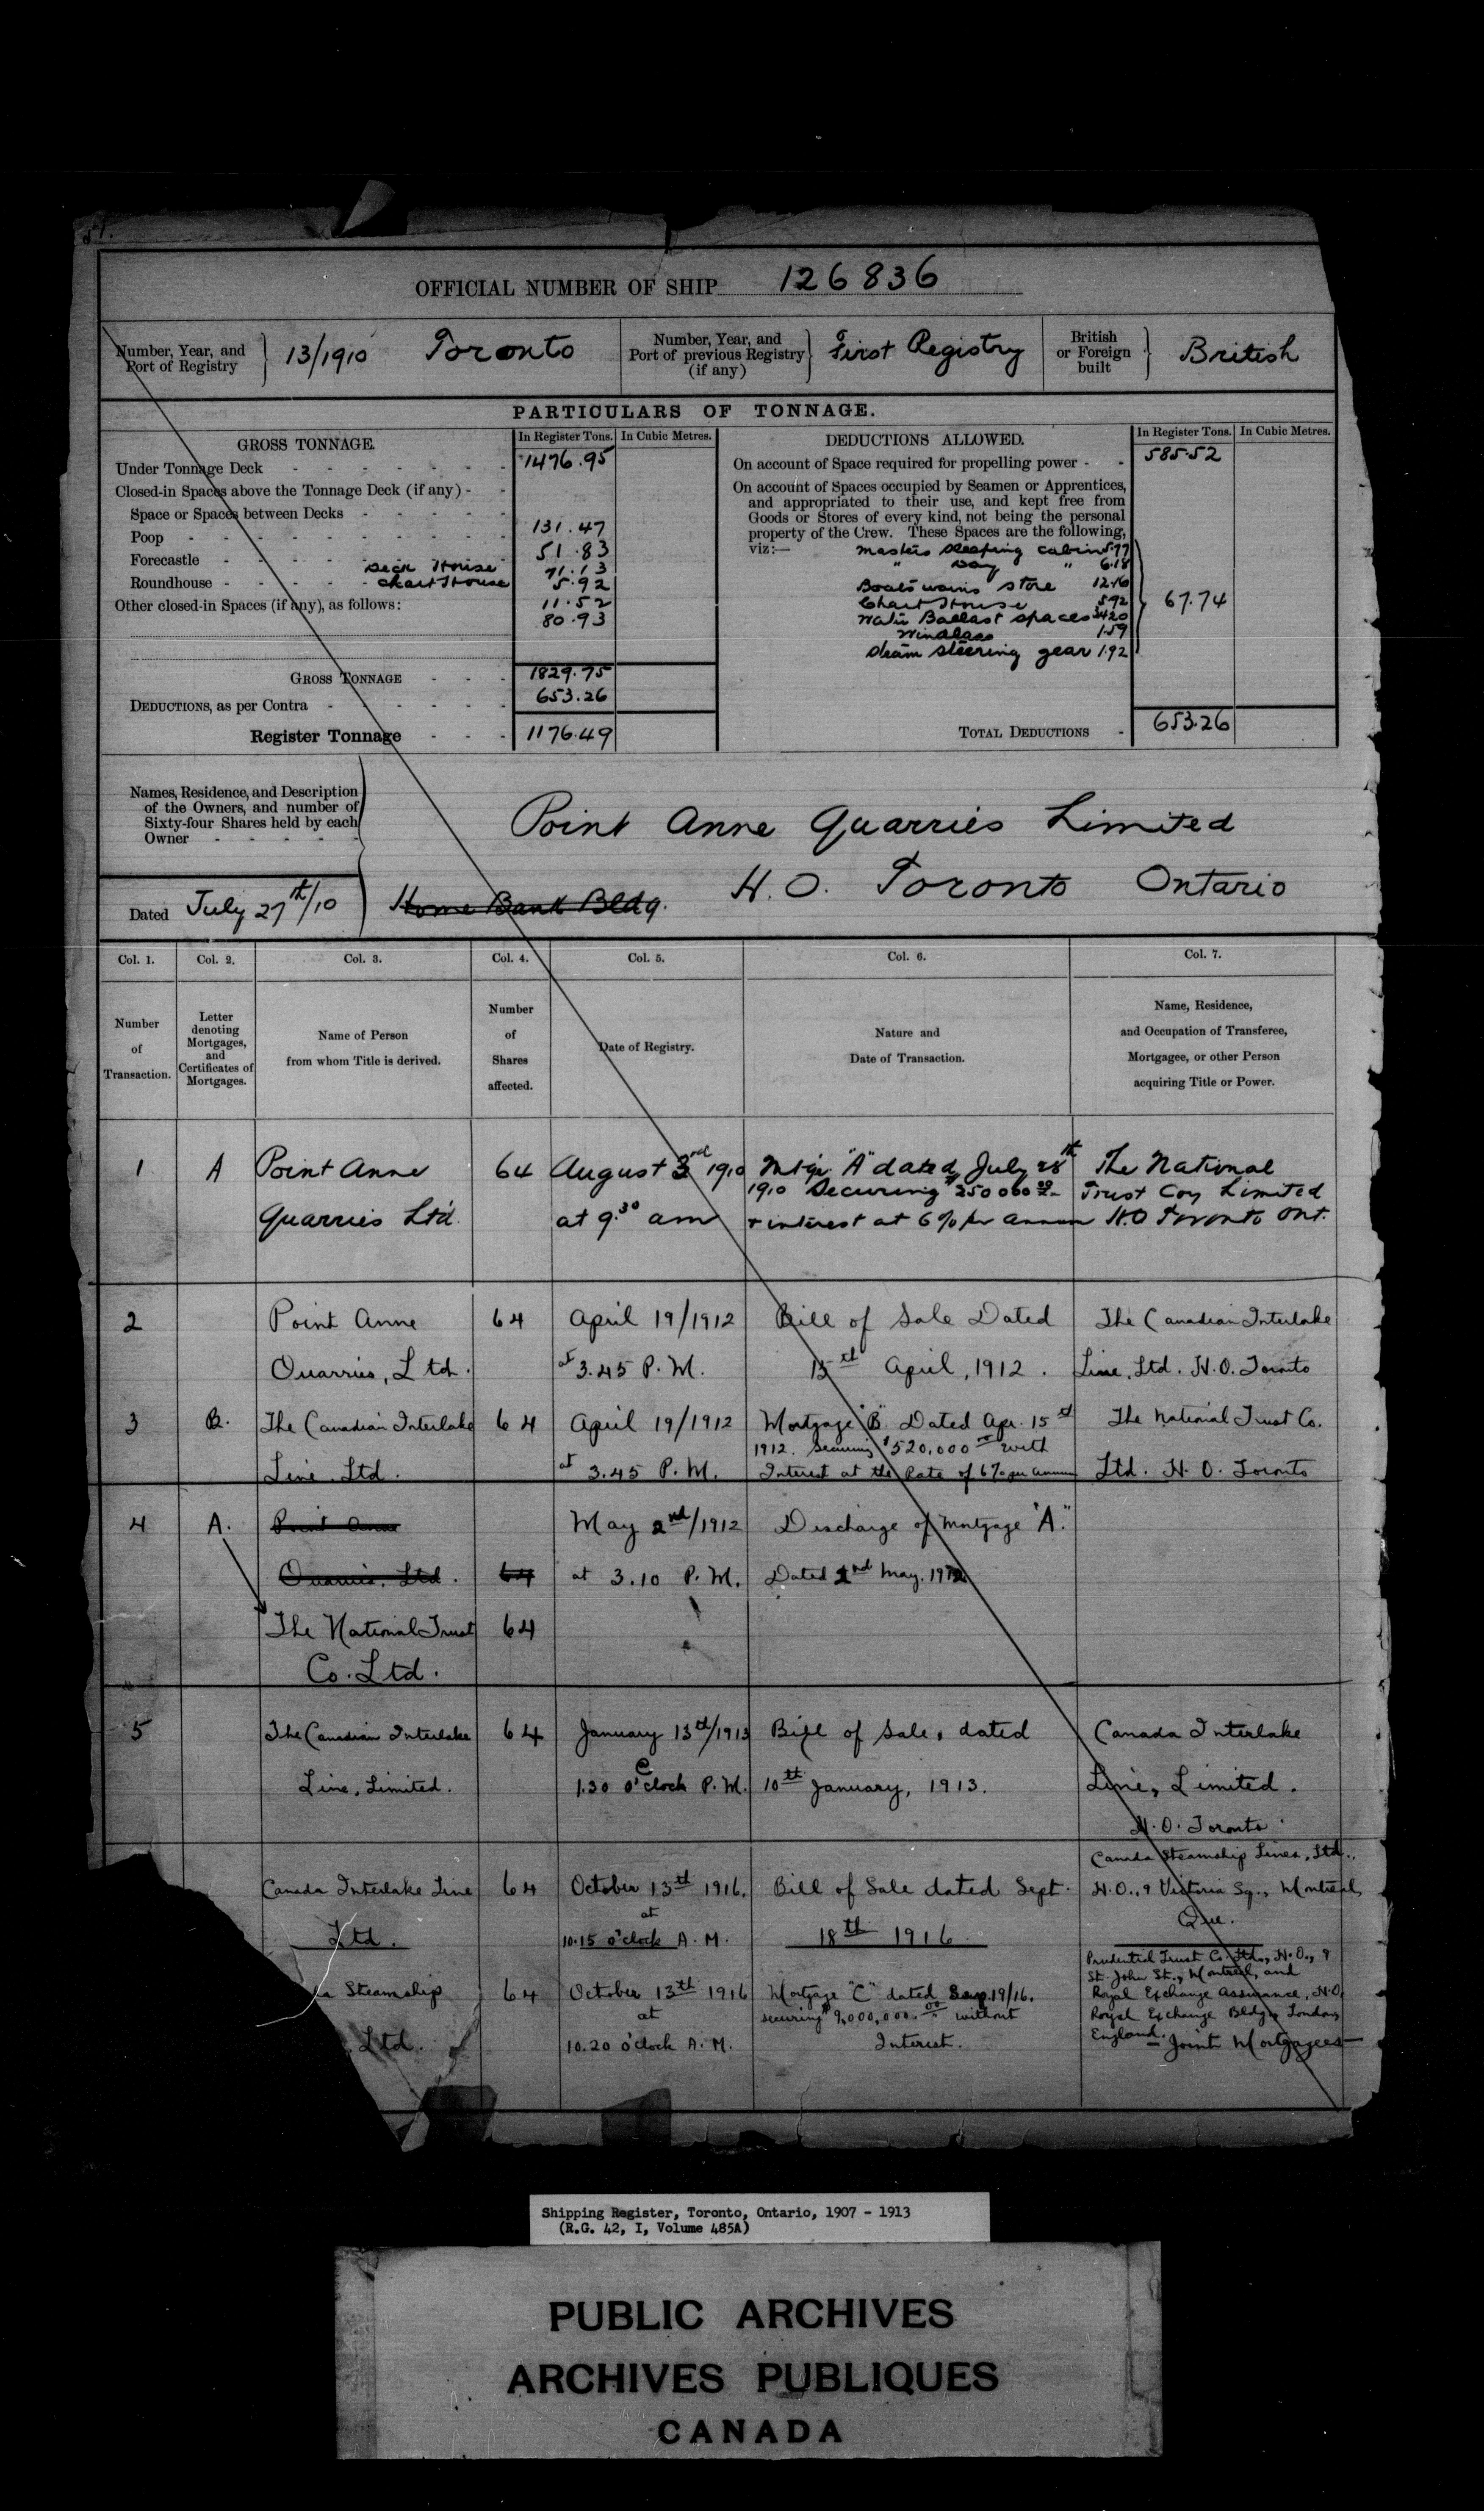 51.
OFFICIAL NUMBER OF SHIP 126836
Number, Year, and Port of Registry } 13/1910 Toronto
Number, Year, and Port of previous Registry (if any) } First Registry
British or Foreign built } British
PARTICULARS OF TONNAGE.
GROSS TONNAGE.
In Register Tons. In Cubic Metres.
Under Tonnage Deck - - - - - - - 1476.95
Closed-in Spaces above the Tonnage Deck (if any) - -
Space or Spaces between Decks - - - - -
Poop - - - - - - - - - 131.47
Forecastle - - - - - 51.83
Deck House 71.13
Roundhouse - - - - - Chart House 5.92
Other closed-in Spaces (if any), as follows: 11.52
80.93
GROSS TONNAGE - - - 1829.75
DEDUCTIONS, as per Contra - - - - - - 653.26
Register Tonnage - - - 1176.49
DEDUCTIONS ALLOWED.
In Register Tons. In Cubic Metres.
On account of Space required for propelling power - - 585.52
On account of Spaces occupied by Seamen or Apprentices,
and appropriated to their use, and kept free from
Goods or Stores of every kind, not being the personal
property of the Crew. These Spaces are the following,
viz:— Masters sleeping cabin 5.77
" Day " 6.18
Boatswains store 12.16
Chart House 5.92
Water Ballast spaces 34.20
Windlass 1.59
Steam steering gear 1.92
67.74
TOTAL DEDUCTIONS - 653.26
Names, Residence, and Description
of the Owners, and number of
Sixty-four Shares held by each
Owner - - - - -
Point Anne Quarries Limited
H.O. Toronto Ontario
Dated July 27th/10
Home Bank Bldg.
Col. 1. Col. 2. Col. 3. Col. 4. Col. 5. Col. 6. Col. 7.
Number of Transaction.
Letter denoting Mortgages, and Certificates of Mortgages.
Name of Person from whom Title is derived.
Number of Shares affected.
Date of Registry.
Nature and Date of Transaction.
Name, Residence, and Occupation of Transferee, Mortgagee, or other Person acquiring Title or Power.
1 A Point Anne 64 August 3rd 1910 Mtge "A" dated July 28th The National
1910 Securing $250000.00 Trust Coy Limited
Quarries Ltd. at 9.30 am + interest at 6% per annum H.O Toronto Ont.
2 Point Anne 64 April 19/1912 Bill of Sale Dated The Canadian Interlake
Quarries, Ltd. at 3.45 P.M. 15th April, 1912. Line, Ltd. H.O. Toronto
3 B. The Canadian Interlake 64 April 19/1912 Mortgage "B" Dated Apr. 15th The National Trust Co.
1912. Securing $520,000.00 with
Line. Ltd. at 3.45 P.M. Interest at the Rate of 6% per annum Ltd. H.O. Toronto
4 A. Point Anne May 2nd/1912 Discharge of Mortgage "A."
Quarries, Ltd. 64 at 3.10 P.M. Dated 2nd May. 1912
The National Trust 64
Co. Ltd.
5 The Canadian Interlake 64 January 13th/1913 Bill of Sale, dated Canada Interlake
Line, Limited. 1.30 o'clock P.M. 10th January, 1913. Line, Limited.
H.O. Toronto.
Canada Steamship Lines, Ltd.,
Canada Interlake Line 64 October 13th 1916. Bill of Sale dated Sept. H.O., 9 Victoria Sq., Montreal,
at Que.
Ltd. 10.15 o'clock A.M. 18th 1916
Prudential Trust Co. Ltd., H.O., 9
St. John St., Montreal, and
a Steamship 64 October 13th 1916 Mortgage "C" dated Sep. 19/16. Royal Exchange Assurance, H.O.
at securing $9,000,000.00 without Royal Exchange Bldg. London,
Ltd. 10.20 o'clock A.M. Interest. England. — Joint Mortgagees
Shipping Register, Toronto, Ontario, 1907 - 1913
(R.G. 42, I, Volume 485A)
PUBLIC ARCHIVES
ARCHIVES PUBLIQUES
CANADA